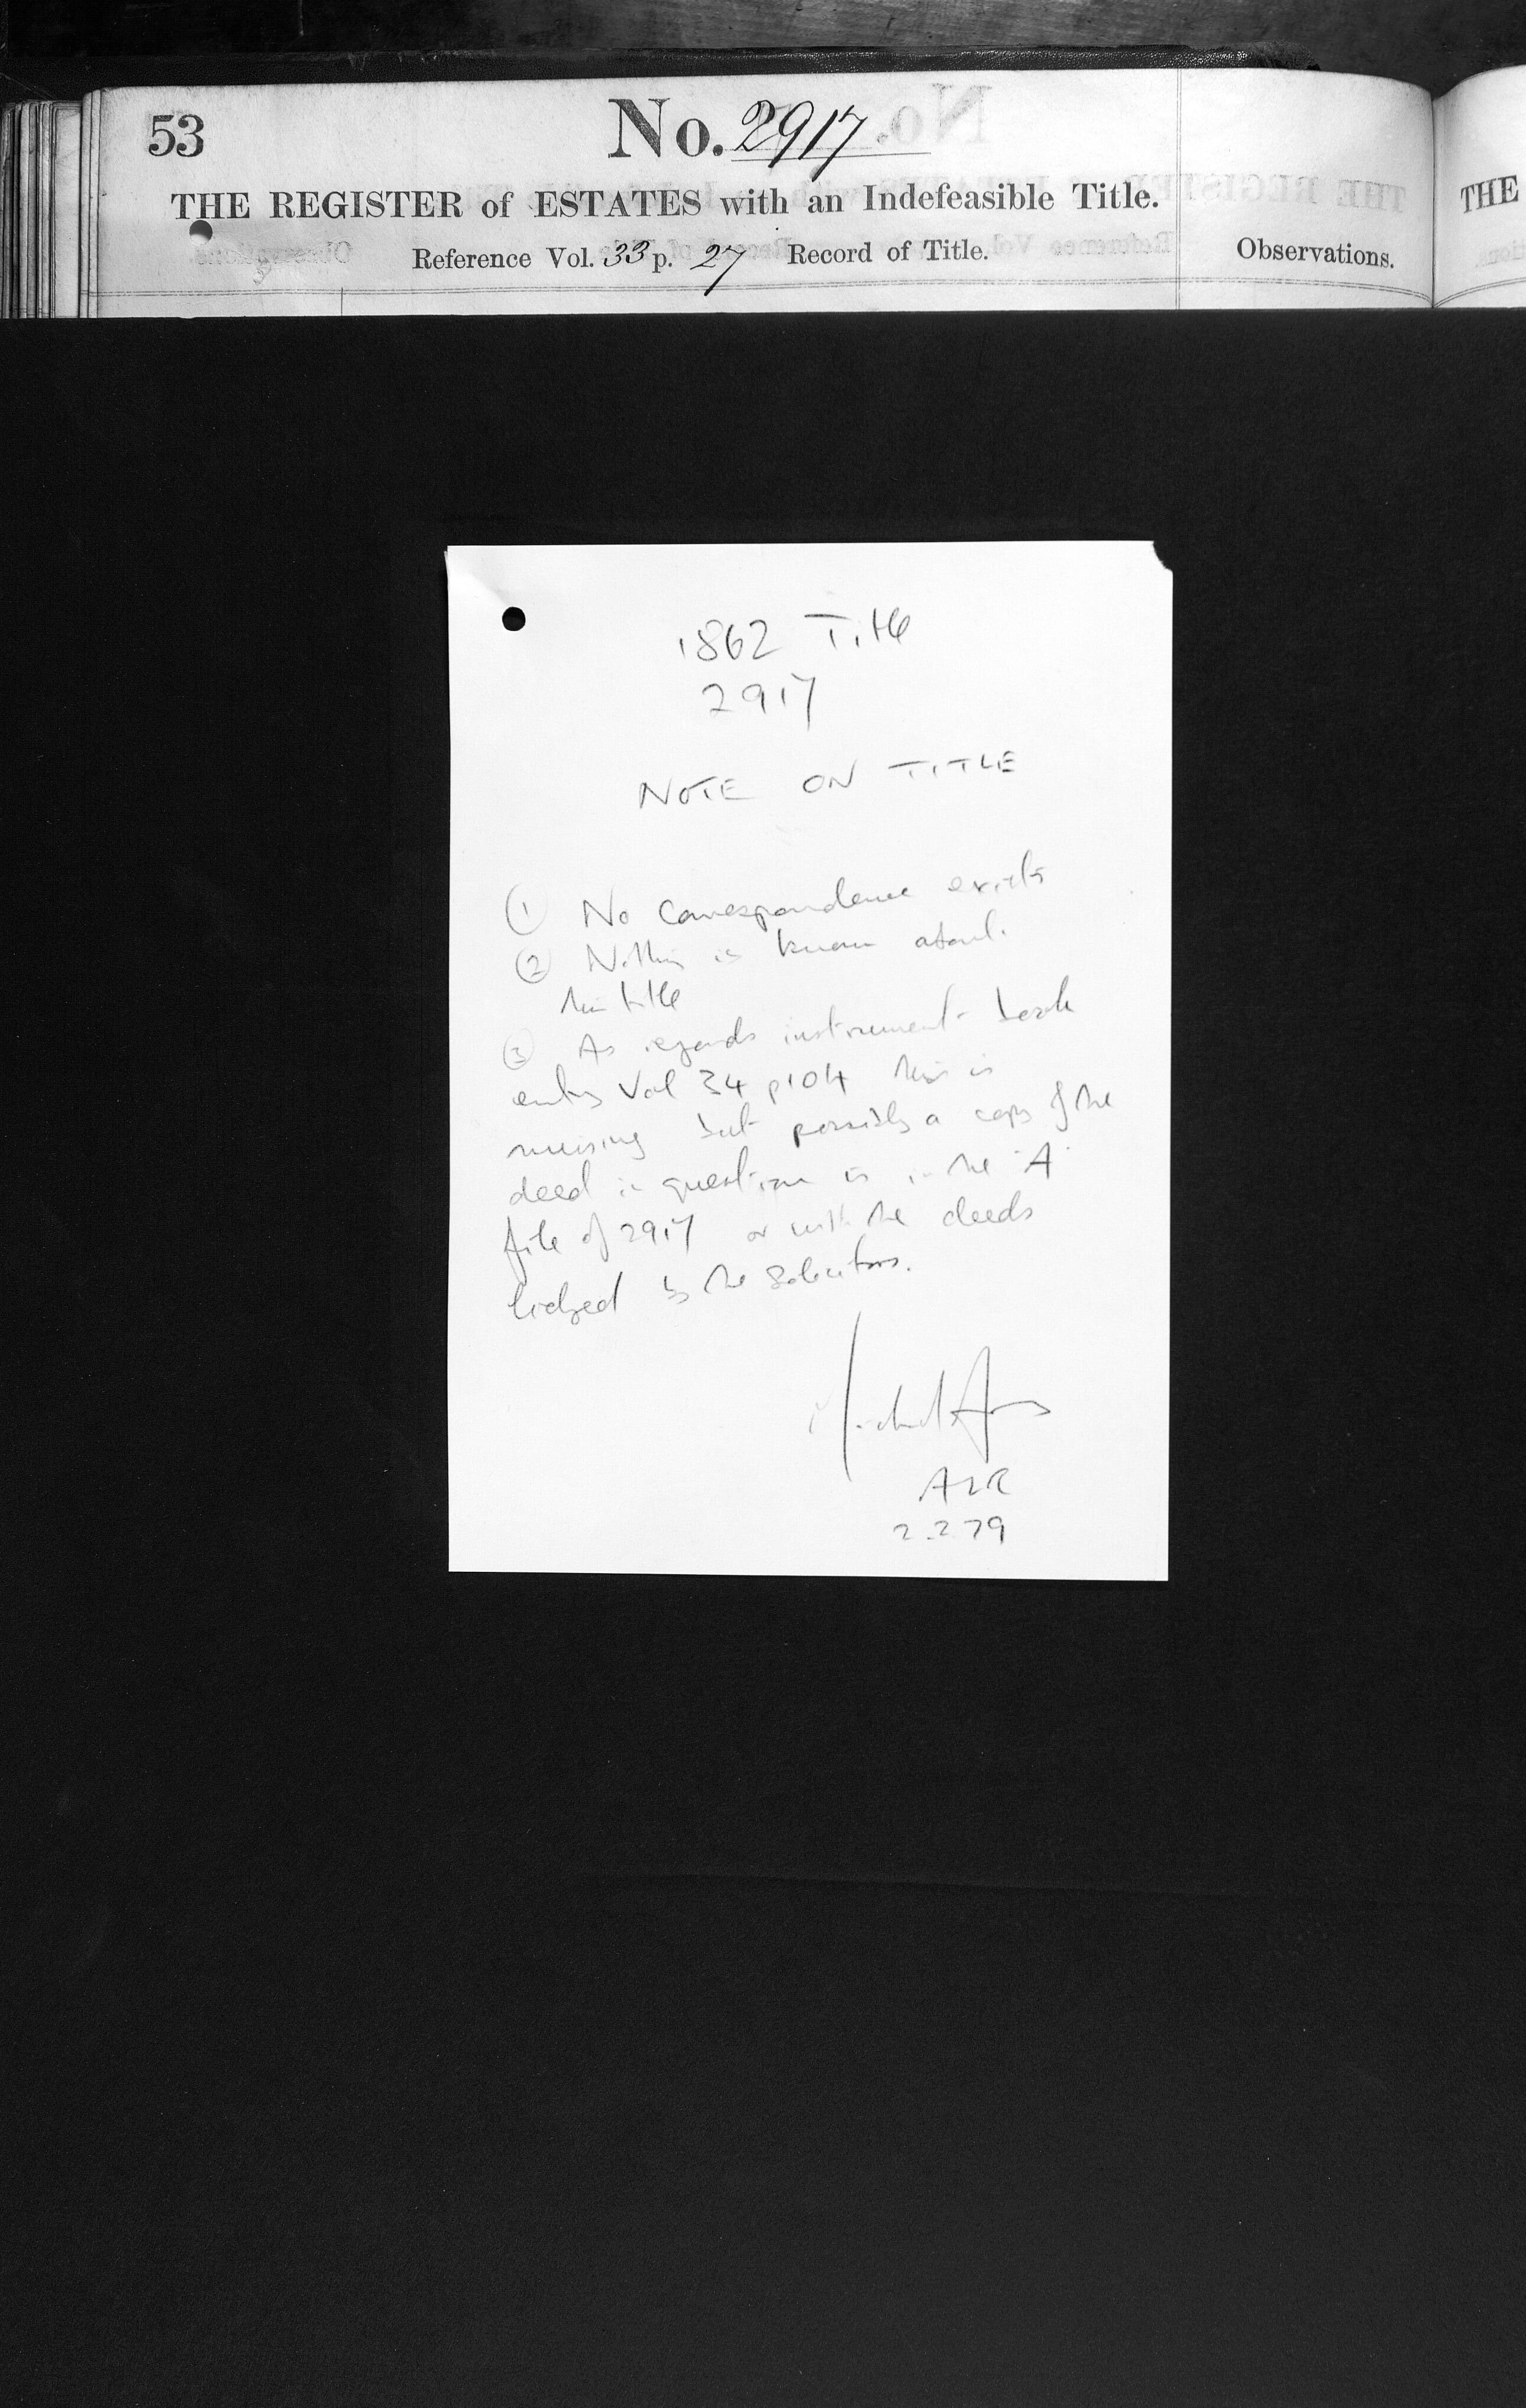 53
No. 2917
THE REGISTER of ESTATES with an Indefeasible Title.
THE
Reference Vol. 33 p. 27 Record of Title.
Observations.
1862 Title
2917
NOTE ON TITLE
① No Correspondence exists
② Nothing is known about
this title
③ As regards instrument book
entry Vol 34 p104 this is
missing but possibly a copy of the
deed in question is in the 'A'
file of 2917 or with the deeds
lodged by the Solicitors.
Michael
ALR
2.2.79